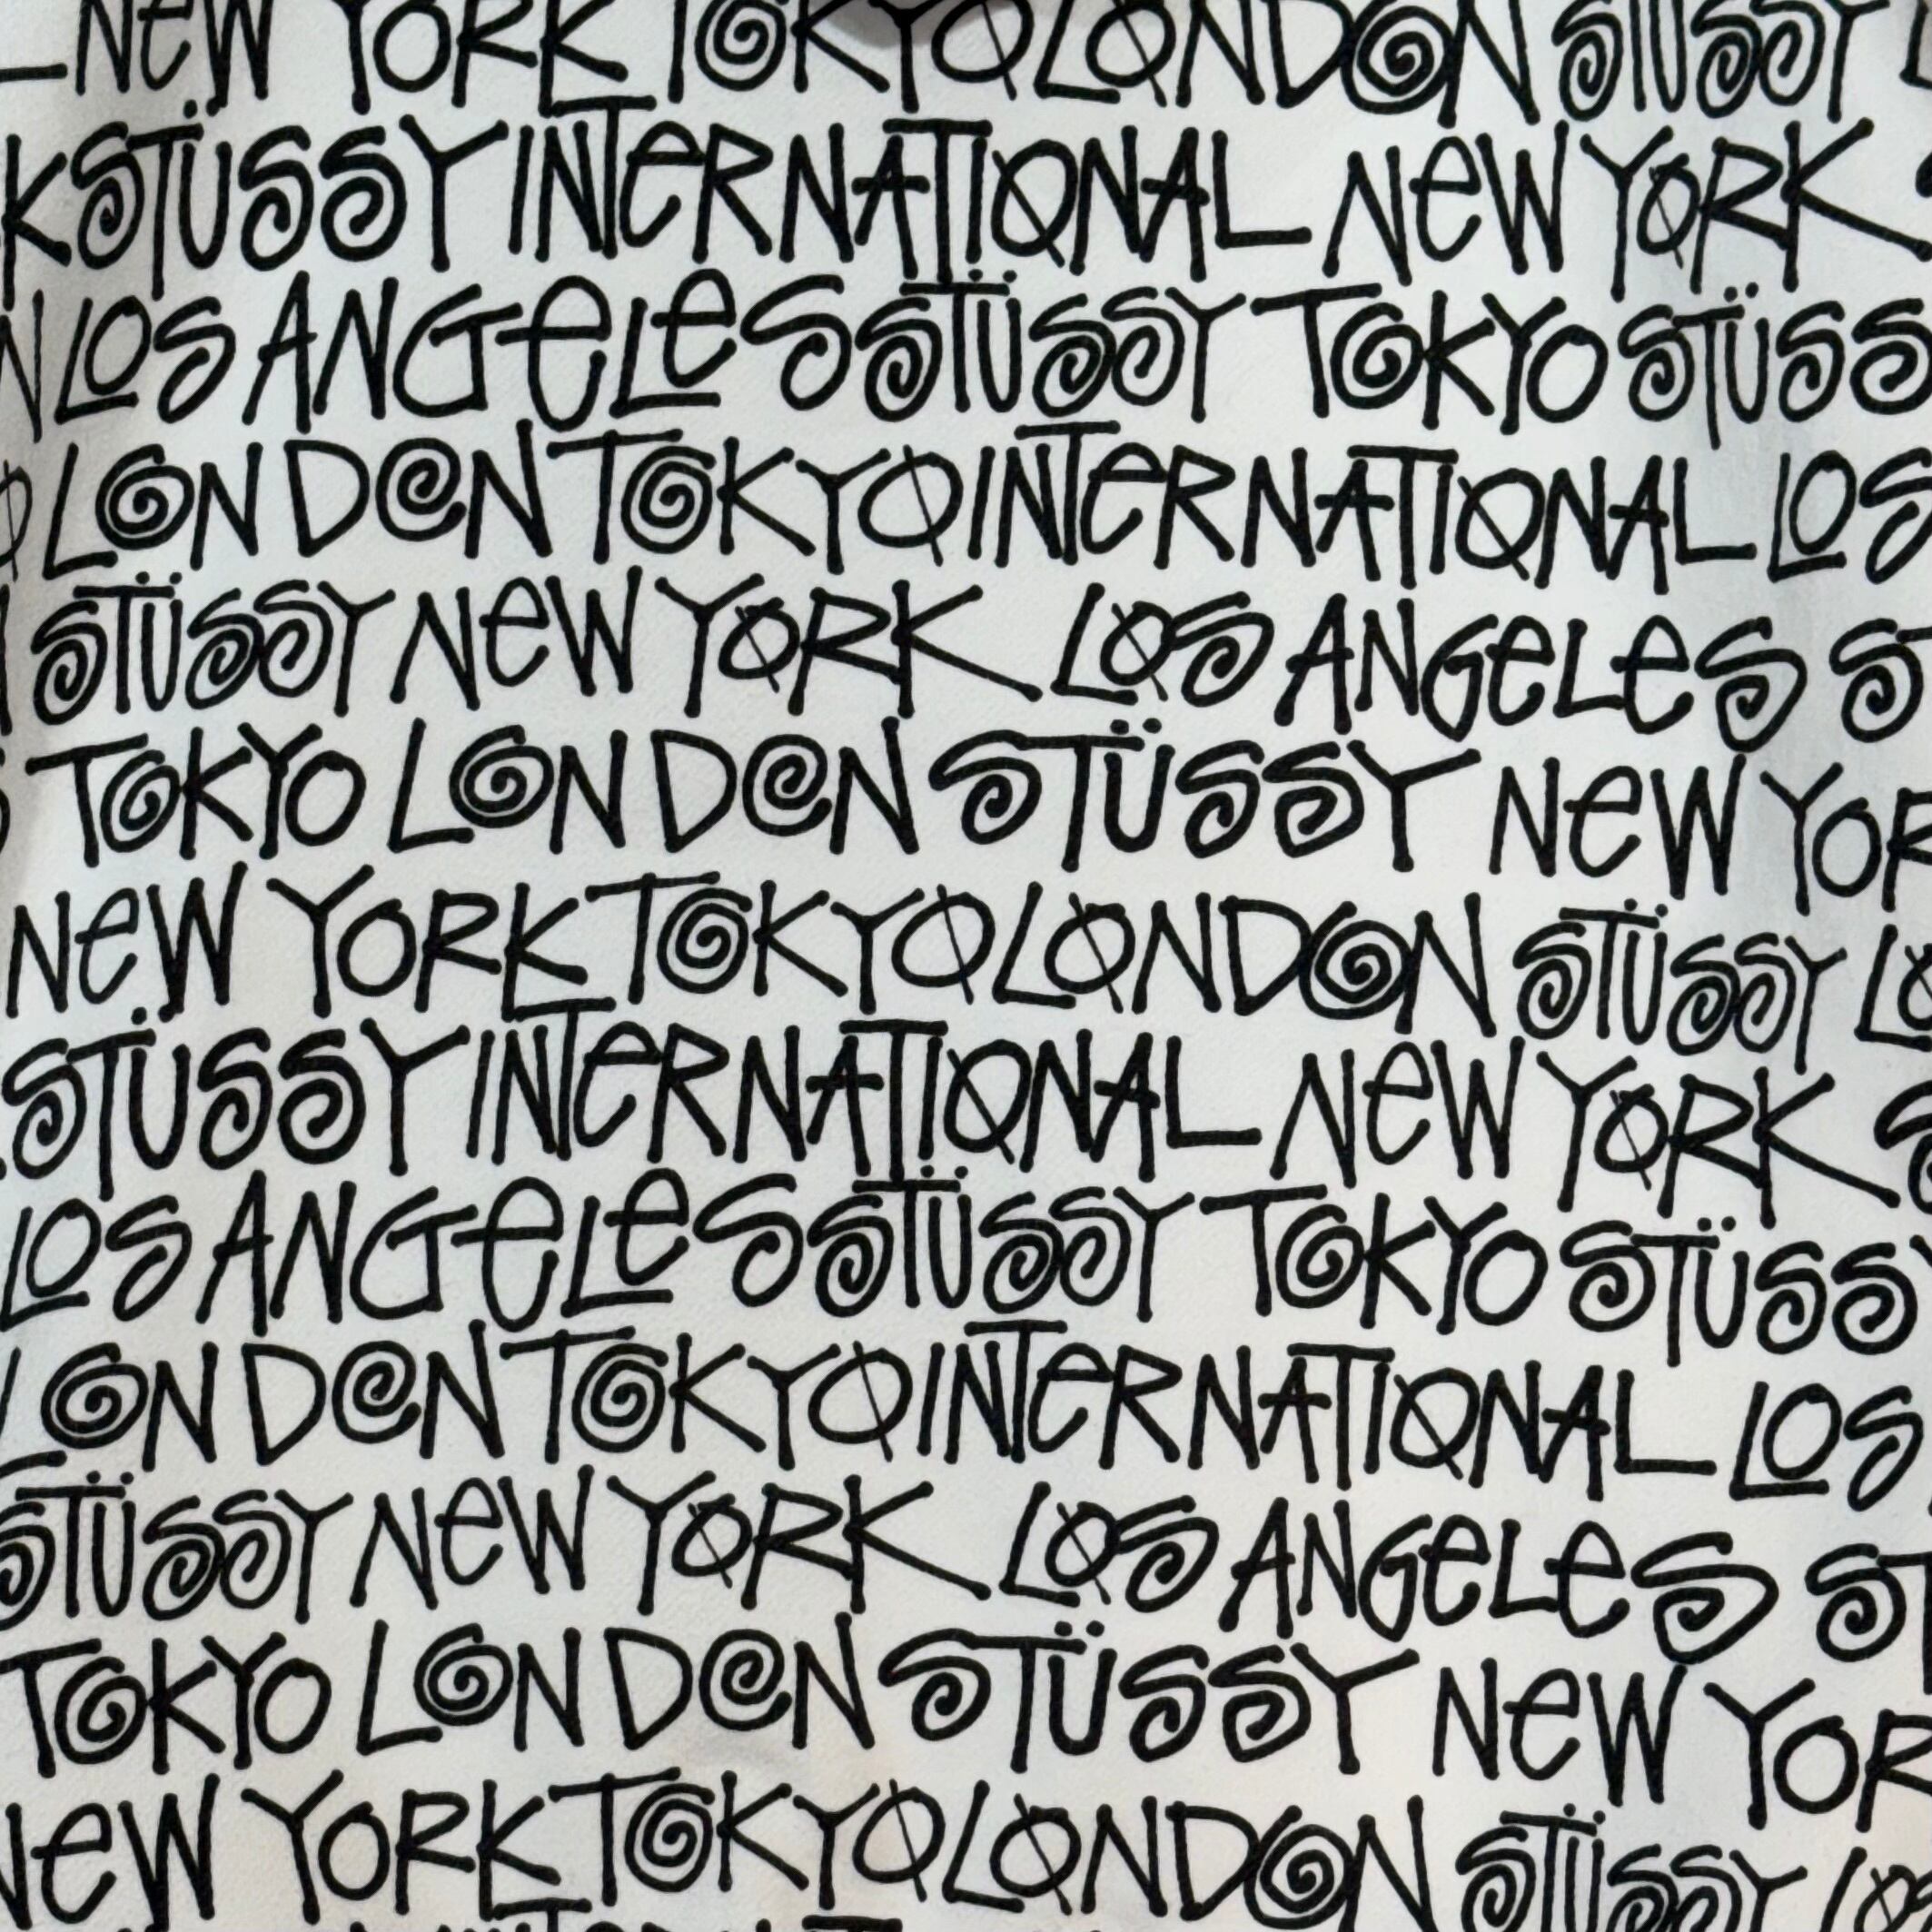 NeW YORK TOKYO LONDON STÜSSY
STÜSSY INTeRNATIONAL NeW YORK
LOS ANGeLeS STÜSSY TOKYO STÜSS
LONDON TOKYO INTeRNATIONAL LOS
STÜSSY NeW YORK LOS ANGeLeS ST
TOKYO LONDON STÜSSY NeW YOR
NeW YORK TOKYO LONDON STÜSSY LO
STÜSSY INTeRNATIONAL NeW YORK S
LOS ANGeLeS STÜSSY TOKYO STÜSSY
LONDON TOKYO INTeRNATIONAL LOS
STÜSSY NeW YORK LOS ANGeLeS ST
TOKYO LONDON STÜSSY NeW YOR
NeW YORK TOKYO LONDON STÜSSY LOS